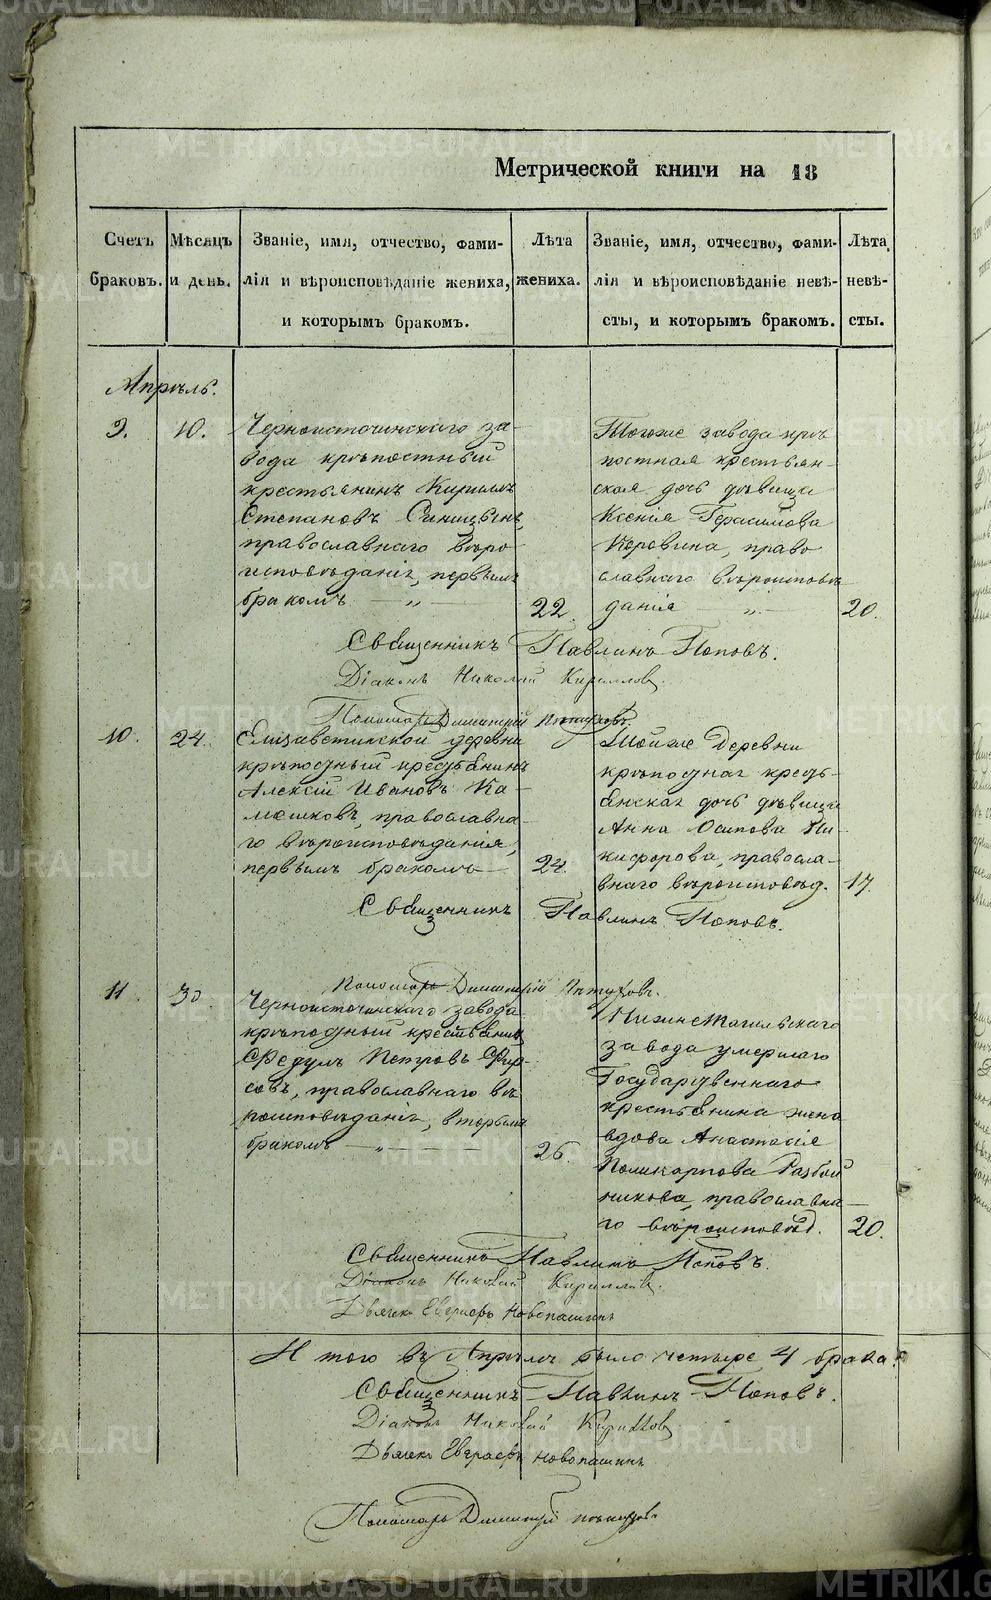 METRIKI.GASO-URAL.RU
Метрической книги на 18
Счетъ браковъ.
Мѣсяцъ и день.
Званіе, имя, отчество, фами-
лія и вѣроисповѣданіе жениха,
и которымъ бракомъ.
Лѣта жениха.
Званіе, имя, отчество, фами-
лія и вѣроисповѣданіе невѣ-
сты, и которымъ бракомъ.
Лѣта невѣ-
сты.
Апрѣль.
9.
10.
Черноисточинскаго за-
вода крѣпостный
крестьянинъ Кириллъ
Степановъ Синицынъ,
православнаго вѣро
исповѣданія, первымъ
бракомъ — „ —
22.
Тогоже завода крѣ
постная крестьян-
ская дочь дѣвица
Ксенія Герасимова
Коровина, право
славнаго вѣроисповѣ
данія — „ —
20.
Священникъ Павлинъ Поповъ.
Діаконъ Николай Кирилловъ.
Пономарь Димитрій
10.
24.
Елизаветинской деревни
крѣпостный крестьянинъ
Алексій Ивановъ Ка-
мешковъ, православна-
го вѣроисповѣданія,
первымъ бракомъ —
24.
Тойже деревни
крѣпостная кресть-
янская дочь дѣвица
Анна Осипова Ни-
кифорова, правосла-
внаго вѣроисповѣд.
17.
Священникъ Павлинъ Поповъ.
Пономарь Димитрій
11.
30.
Черноисточинскаго завода
крѣпостный крестьянинъ
Ѳедулъ Петровъ Фир-
совъ, православнаго вѣ
роисповѣданія, вторымъ
бракомъ — „ —
26.
Нижнетагильскаго
завода умершаго
Государственнаго
крестьянина жена
вдова Анастасія
Поликарпова Разбой
никова, православна-
го вѣроисповѣд.
20.
Священникъ Павлинъ Поповъ.
Діаконъ Николай Кирилловъ.
Дьячекъ Новопашинъ
И того въ Апрѣлѣ было четыре 4 брака.
Священникъ Павлинъ Поповъ.
Діаконъ Николай Кирилловъ
Дьячекъ Новопашинъ
Пономарь Димитрій